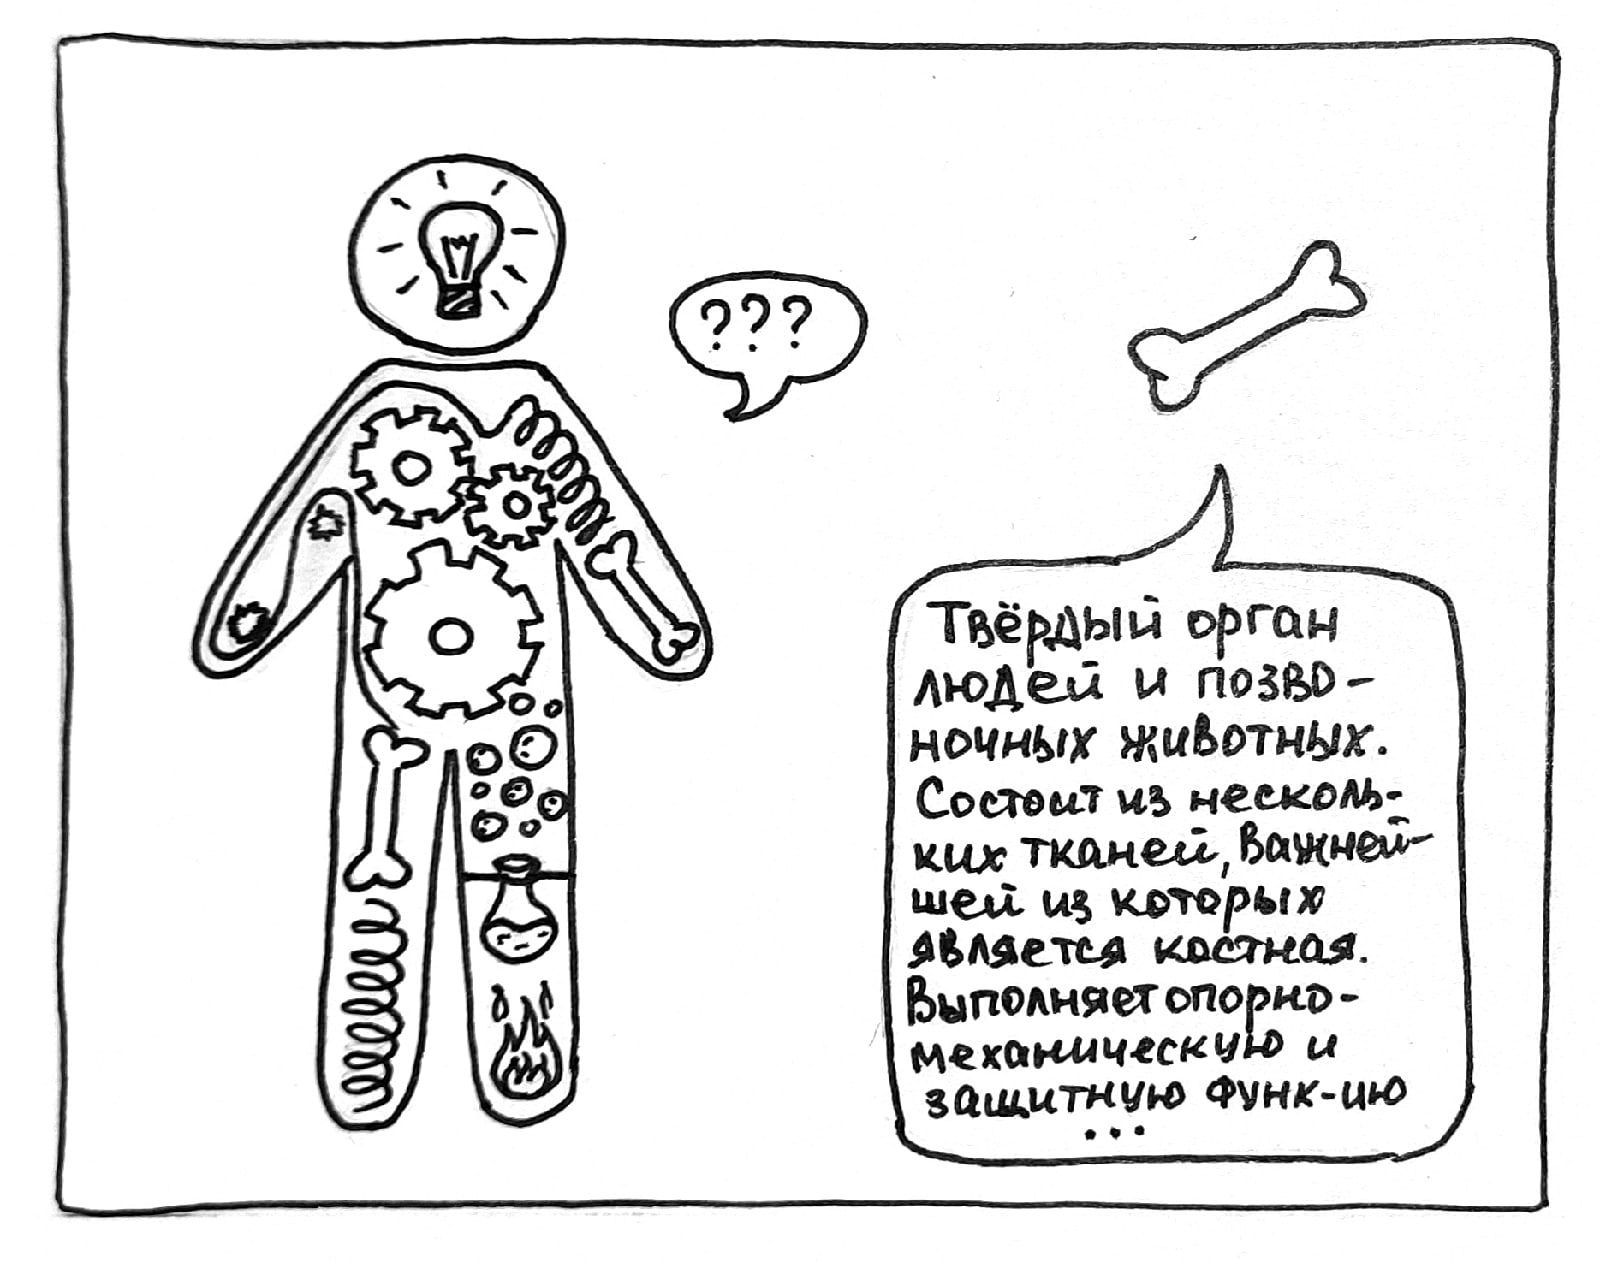 ???
Твёрдый орган
людей и позво-
ночных животных.
Состоит из несколь-
ких тканей, важней-
шей из которых
является костная.
Выполняет опорно-
механическую и
защитную функ-ию
...